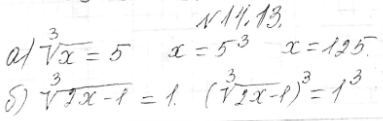 N14.13.
а) ∛x = 5 x = 5³ x = 125.
б) ∛2x-1 = 1. (∛2x-1)³ = 1³